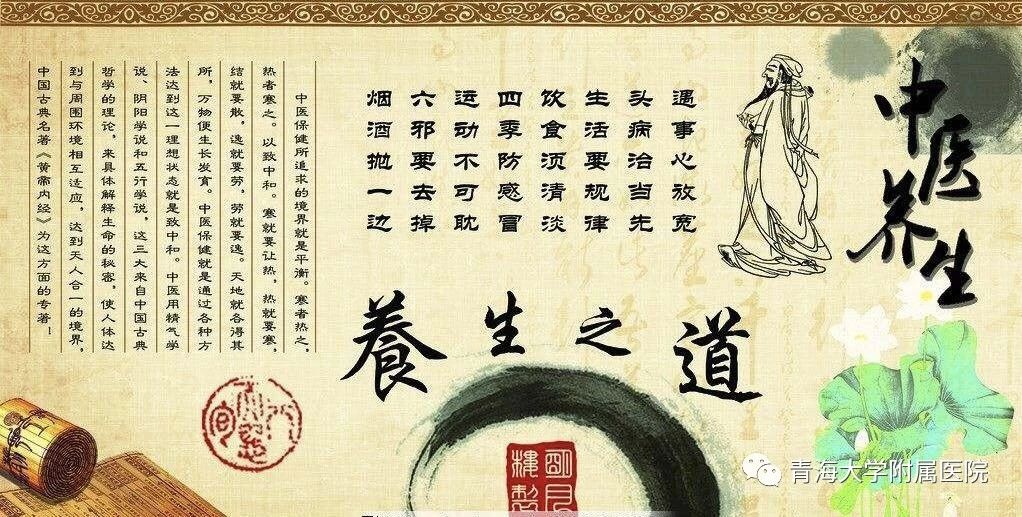 中医养生
遇事心放宽
头病治当先
生活要规律
饮食须清淡
四季防感冒
运动不可耽
六邪要去掉
烟酒抛一边
養生之道
中医保健所追求的境界就是平衡。寒者热之，
热者寒之。以致中和。寒就要让热，热就要寒，
结就要散，逸就要劳，劳就要逸。天地就各得其
所，万物便生长发育。中医保健就是通过各种方
法达到这一理想状态就是致中和。中医用精气学
说、阴阳学说和五行学说，这三大来自中国古典
哲学的理论，来具体解释生命的秘密，使人体达
到与周围环境相互适应，达到天人合一的境界，
中国古典名著《黄帝内经》为这方面的专著！
青海大学附属医院